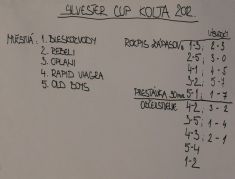 SILVESTER CUP KOLTA 202
VÝSLEDKY
MUŽSTVÁ: 1. DIESKOVODY
2. REBELI
3. OPLANI
4. RAPID VIAGRA
5. OLD BOYS
ROZPIS ZÁPASOV: 1-3, 2-3
2-5; 3-0
4-1; 4-5
3-2; 5-1
PRESTÁVKA 30min 5-1; 1-7
OBČERSTVENIE 4-2; 3-2
3-5; 1-4
4-3; 2-1
5-4
1-2